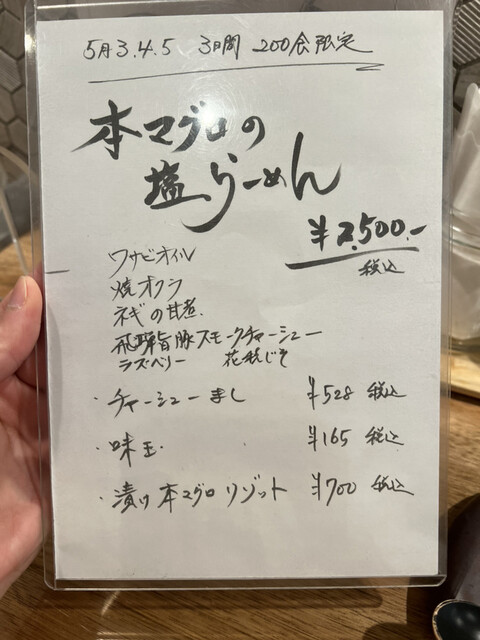 5月3.4.5 3日間 200食限定
本マグロの
塩らーめん
¥2,500.-
税込
ワサビオイル
焼オクラ
ネギの甘煮.
飛騨旨豚スモークチャーシュー
ラズベリー 花穂じそ
・チャーシューまし ¥528 税込
・味玉. ¥165 税込
・漬け本マグロリゾット ¥700 税込